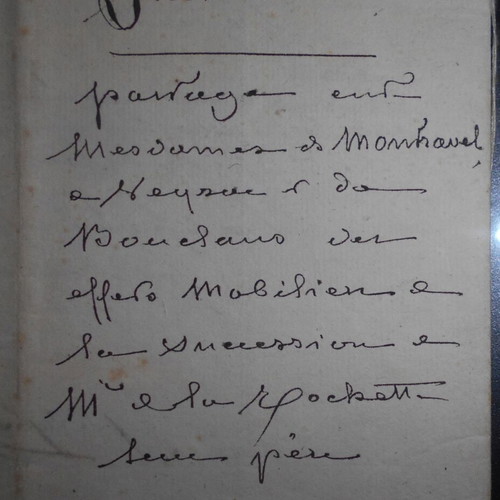 partage entre
Mesdames de Montravel,
de Veyrac et de
Bouclans des
effets Mobiliers de
la succession de
Mr de la Rochette
leur père